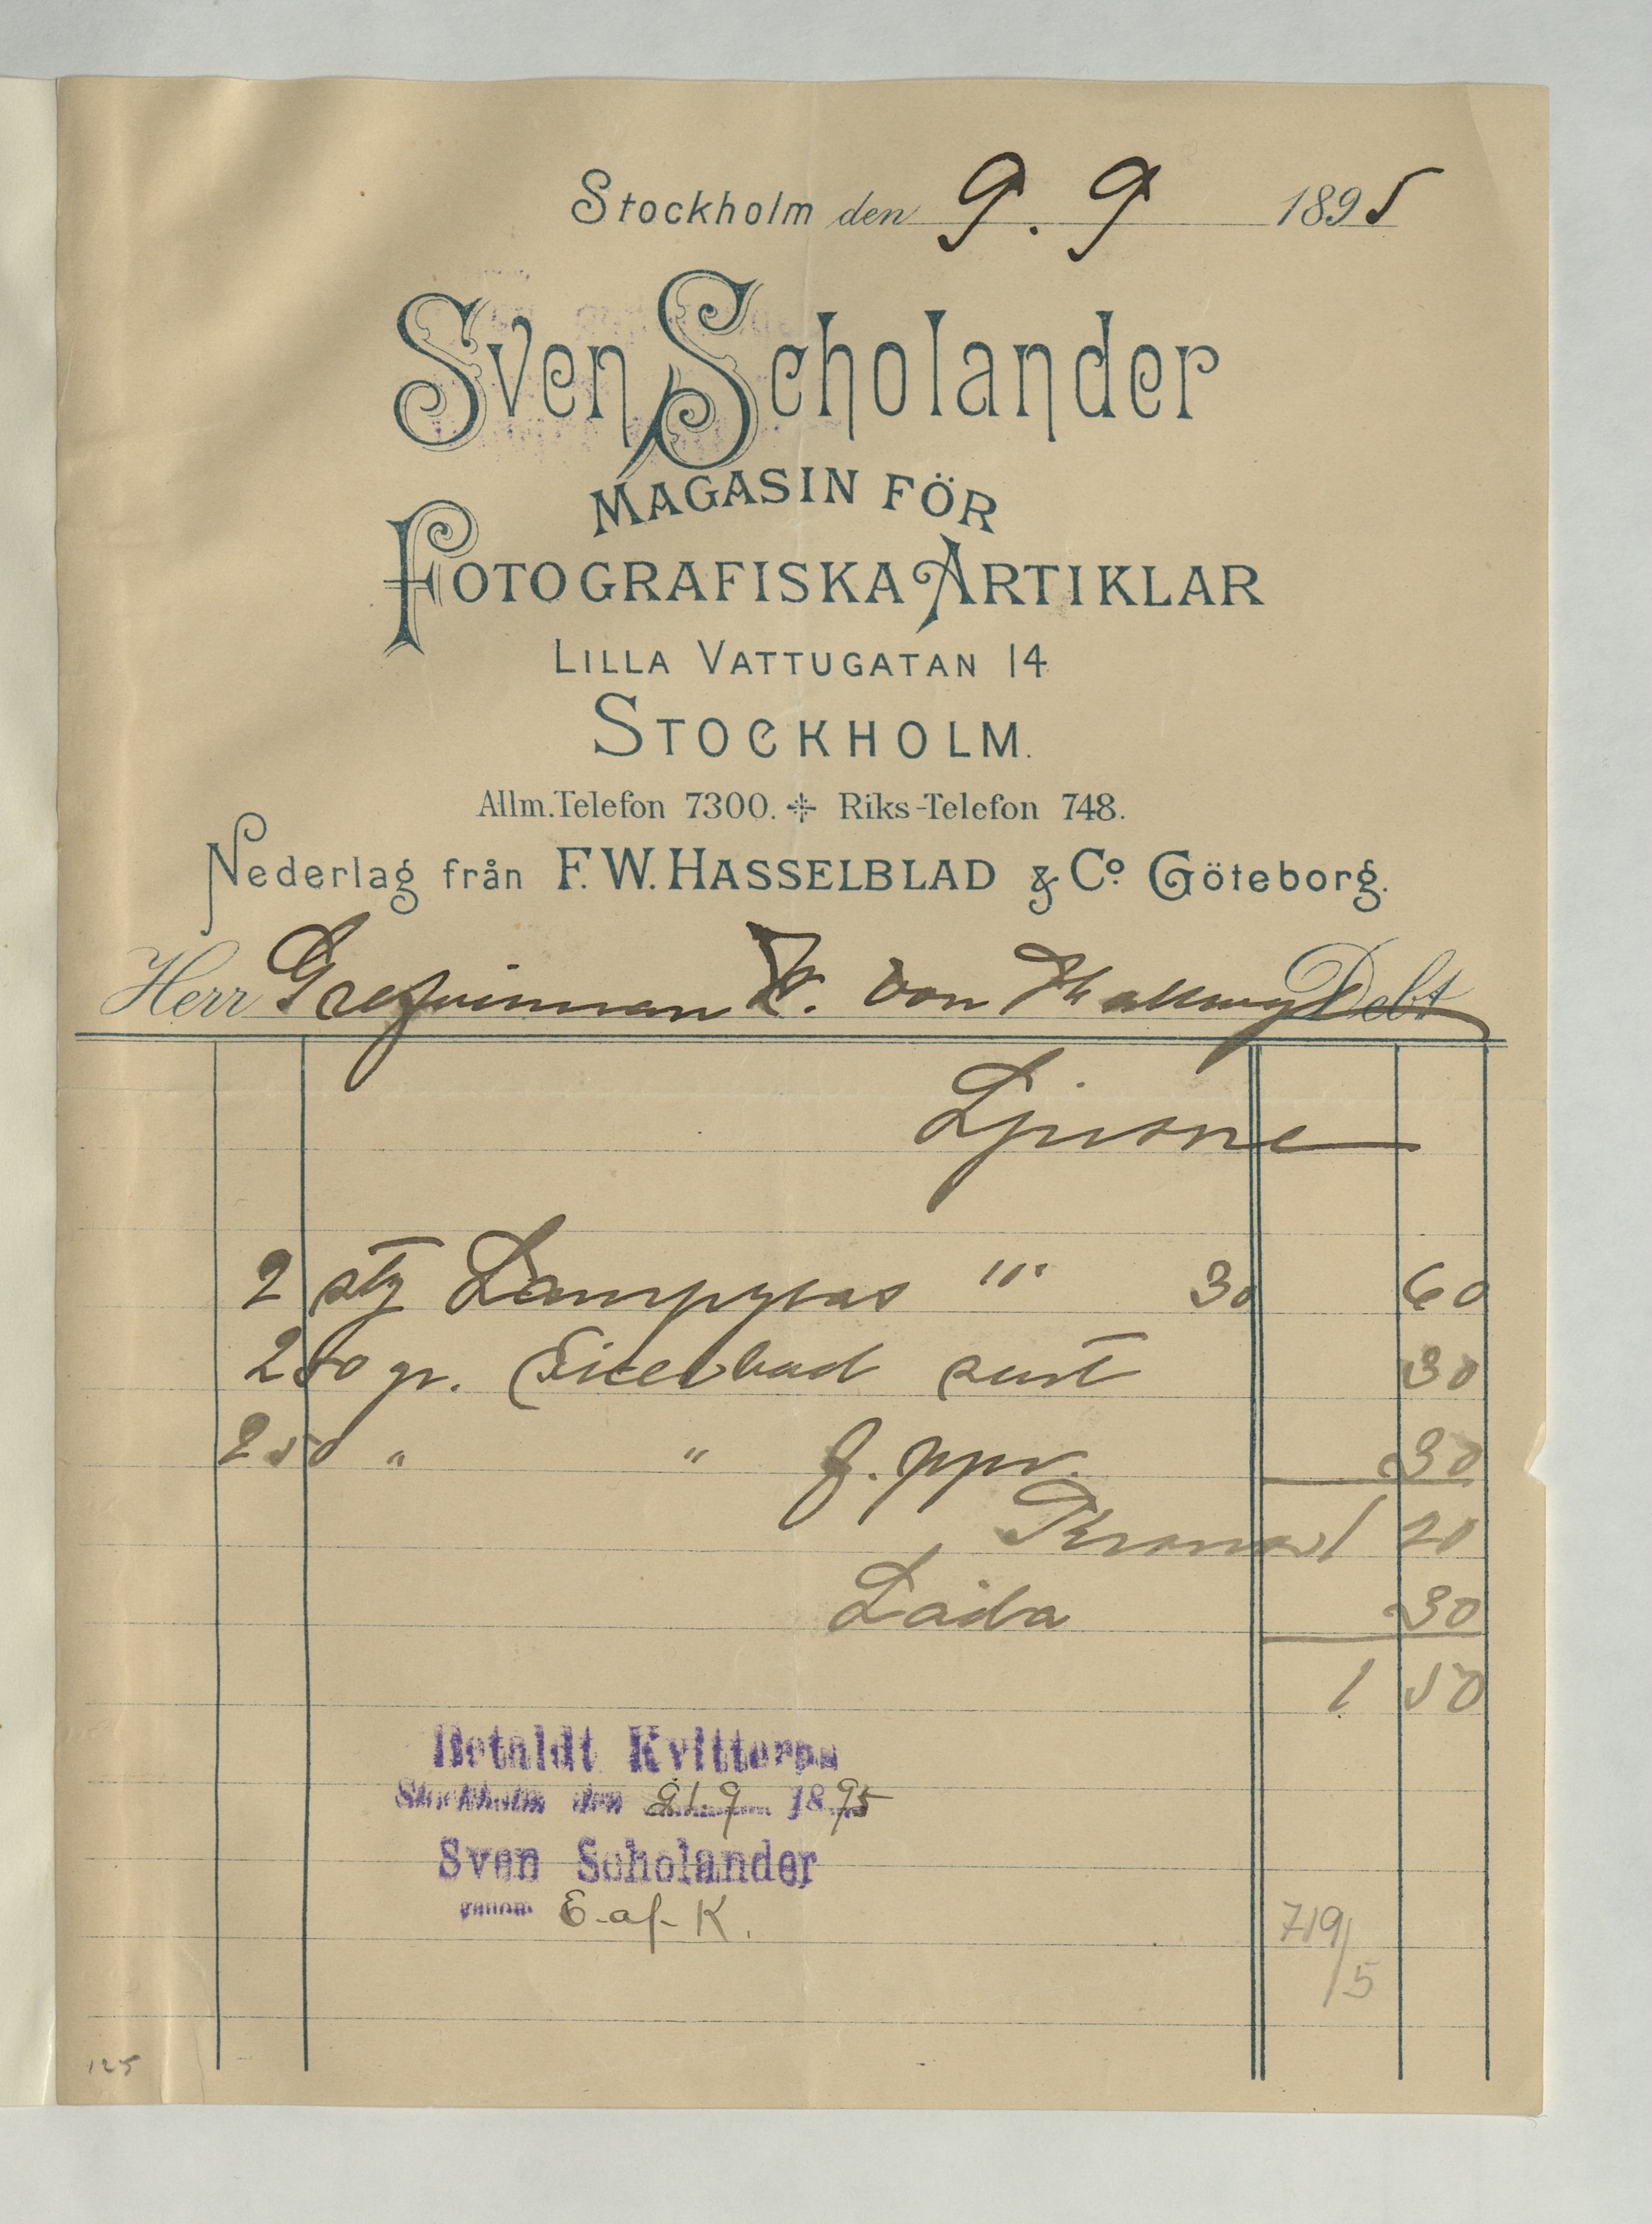 Stockholm den 9. 9 1895
Sven Scholander
MAGASIN FÖR
FOTOGRAFISKA ARTIKLAR
LILLA VATTUGATAN 14
STOCKHOLM.
Allm. Telefon 7300. Riks-Telefon 748.
Nederlag från F. W. HASSELBLAD & Co. Göteborg.
Herr Grefvinnan W. von Hallwyl Debt
Ljusne
2 st Lampglas "" 30 60
250 gr. bad surt 30
250 " " f. ppr. 30
Kronor 1 20
Låda 30
1 50
Betaldt Kvitteras
Stockholm den 21.9 1895
Sven Scholander
genom E. af. K.
719/5
125